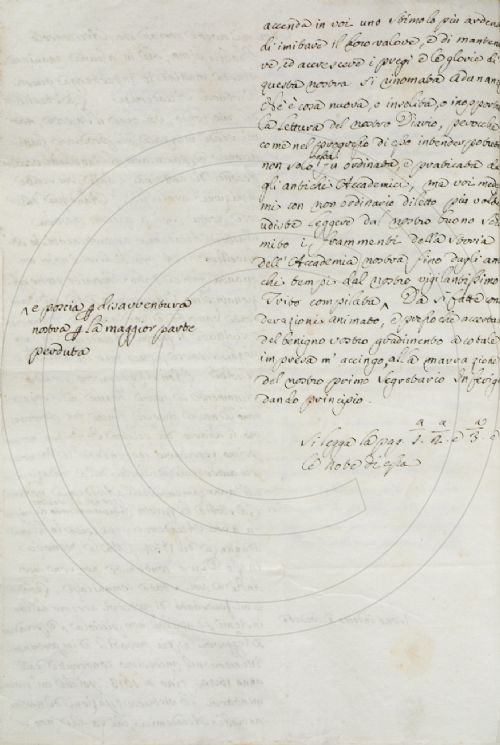 accenda in voi uno stimolo più arden
di imitare il loro valore, e di manten
re, ed accrescere i pregi e le glorie di
questa nostra sì rinomata Adunan
Nè è cosa nuova, o insolita, o inopport
la lettura del nostro Diario, perocchè
come nel progresso di esso intender potrete
non solo essa fù ordinata, e praticata da
gli antichi Accademici, ma voi mede
mi con non ordinario diletto più volte
udiste leggere dal nostro buono Se
mito i frammenti della Storia
dell'Accademia nostra fino dagli an
chi tempi dal nostro vigilantissimo
Trito compilata ^ Da sì fatte con
derazioni animato, e
del benigno vostro gradimento a cotale
impresa m'accingo, alla narrazione
del nostro primo Segretario Inferig
dando principio.
^ e poscia p disavventura
nostra p la maggior parte
perduta
Si legga la pag. 1.a 2.a e 3.a e
le note di essa